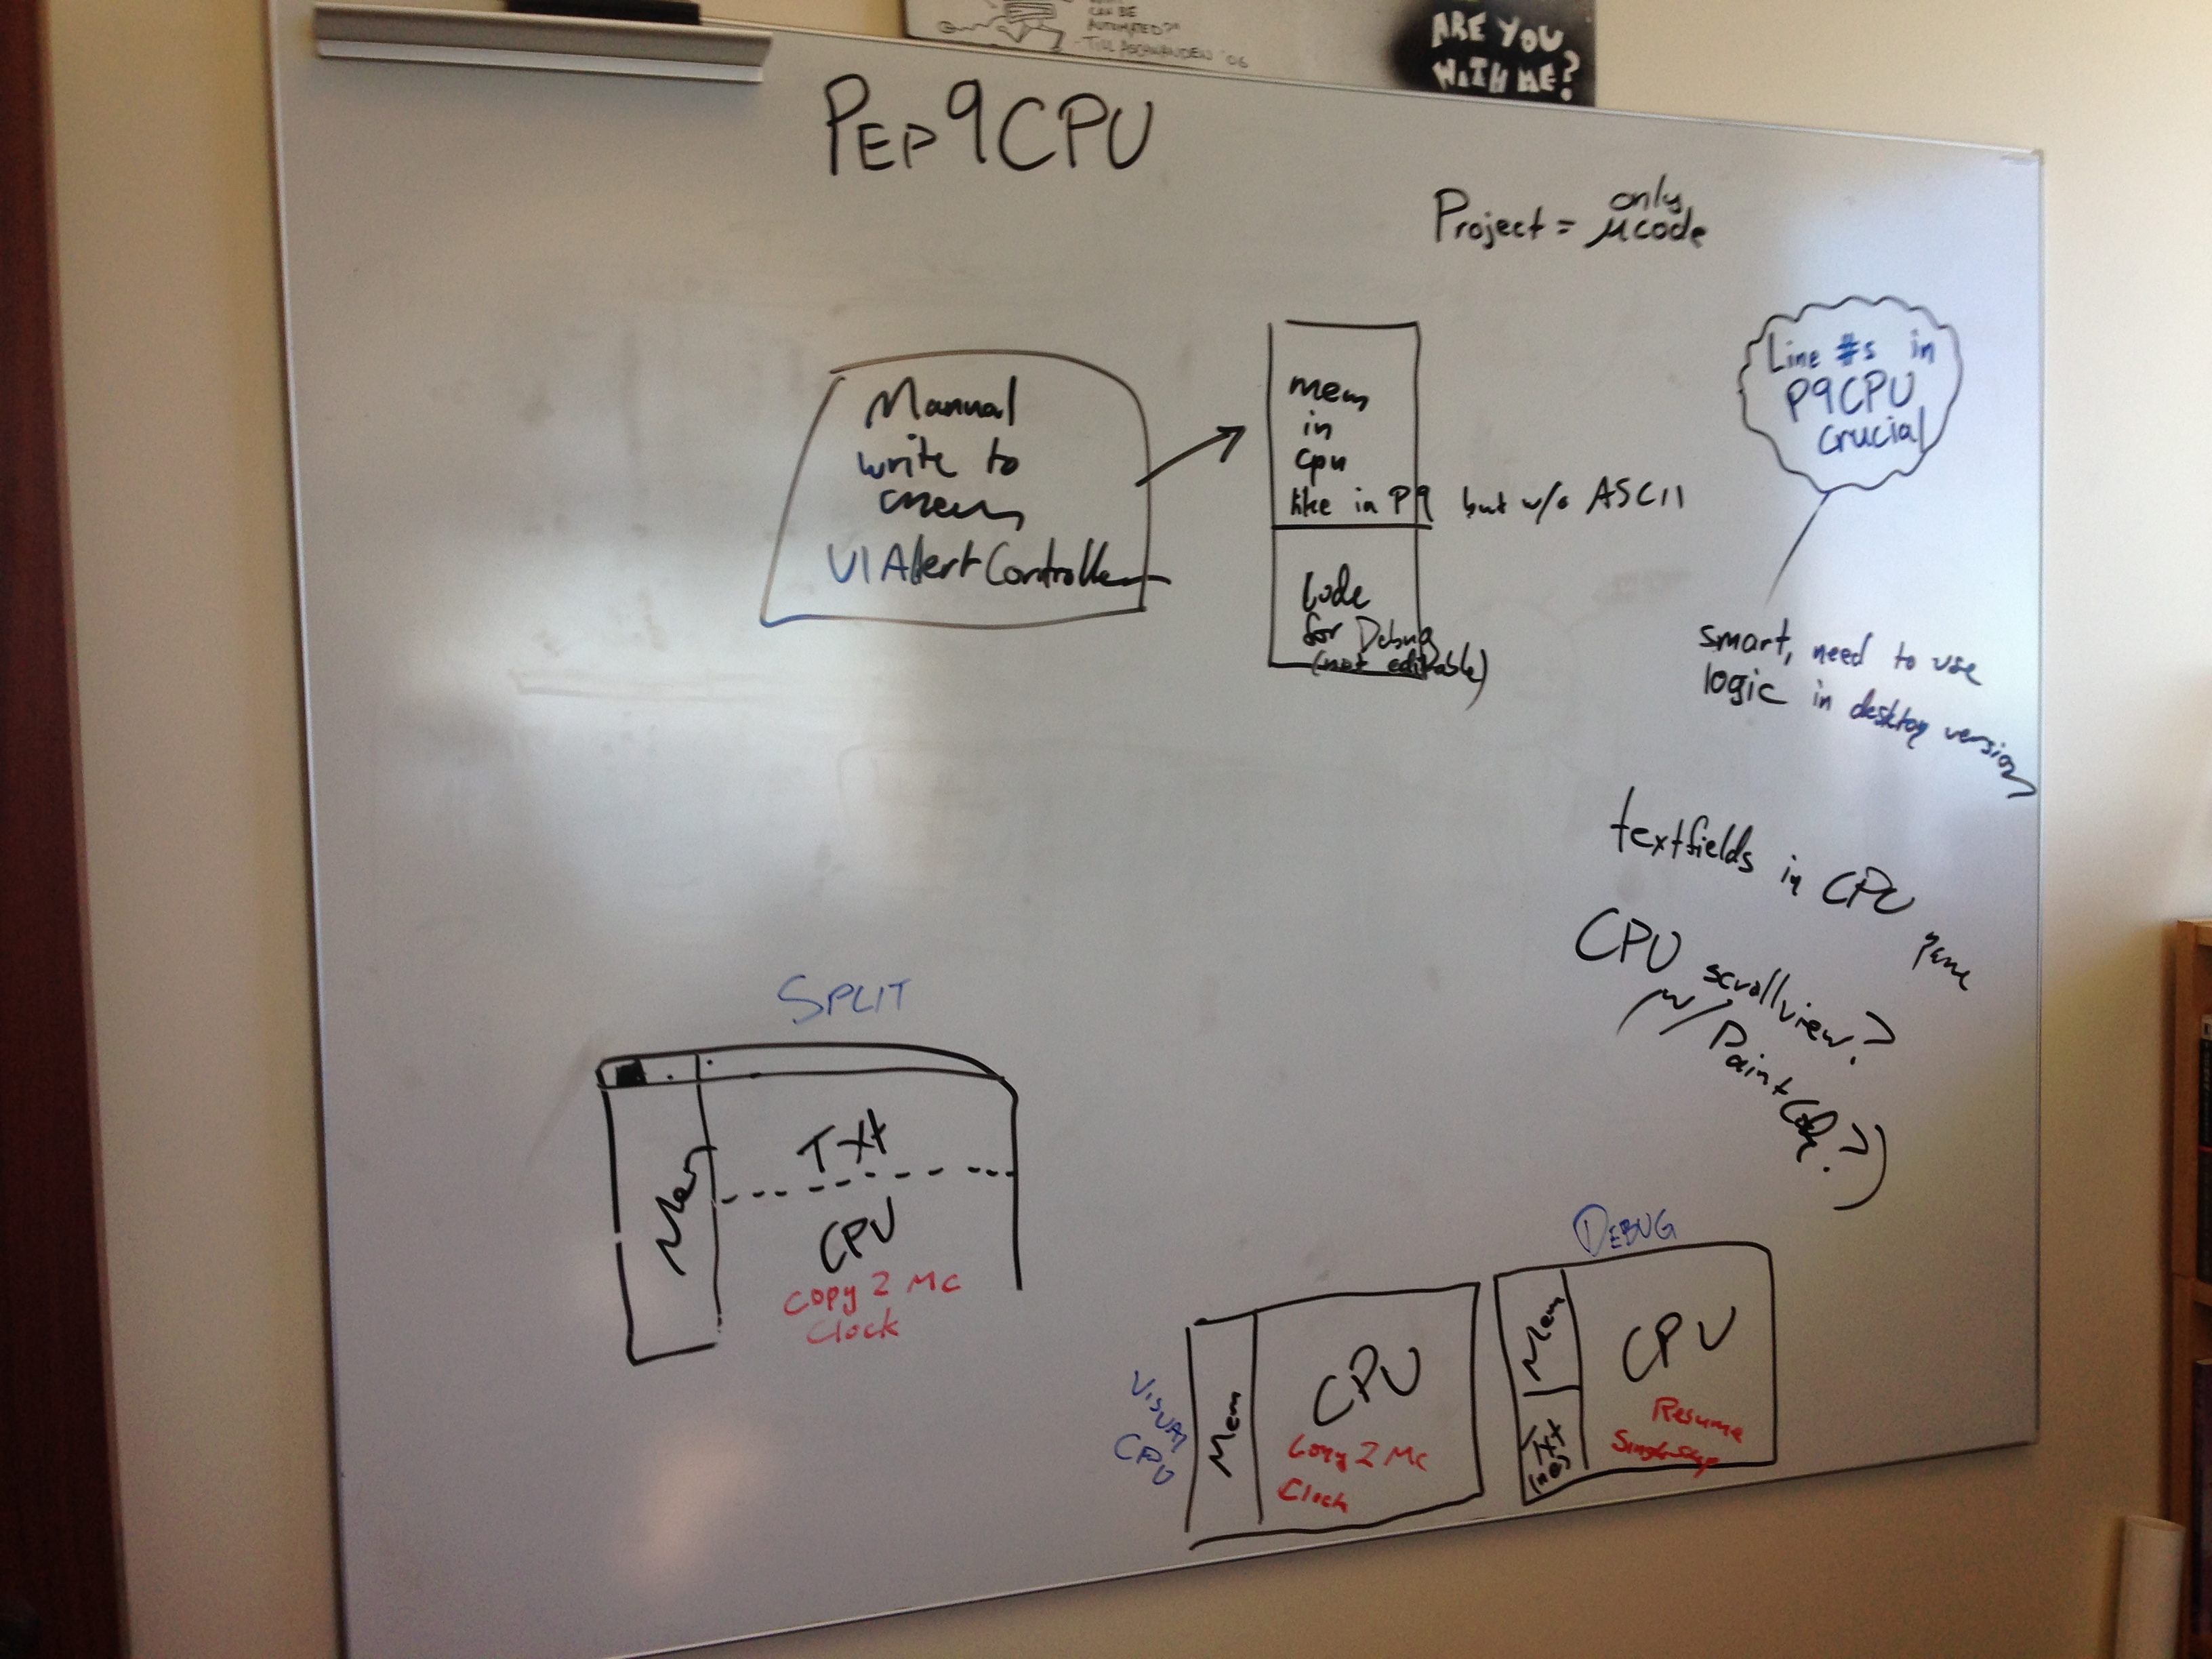 CAN BE
AUTOMATED?"
- TILL ASCHWANDEN '06
ARE YOU
WITH ME?
PEP9CPU
only
Project = μcode
Line #s in
P9CPU
crucial
Manual
write to
mem
UIAlertController
mem
in
cpu
like in P9 but w/o ASCII
Code
for Debug
(not editable)
smart, need to use
logic in desktop version
textfields in CPU pane
CPU scrollview?
(w/ PaintCode?)
SPLIT
Mem
Txt
CPU
Copy 2 MC
Clock
VISUAL
CPU
Mem
CPU
Copy 2 MC
Clock
DEBUG
Mem
Txt
CPU
Resume
Single Step